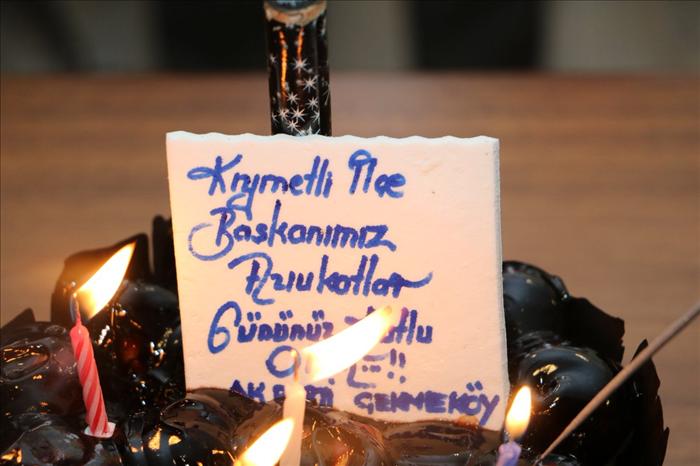 Kıymetli İlçe
Başkanımız
Avukatlar
Gününüz Kutlu
AK GEKMEKÖY